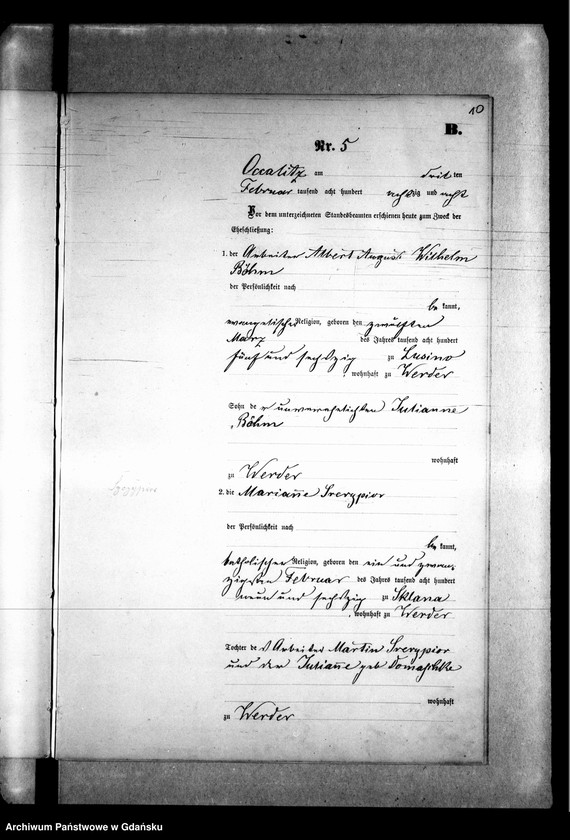 10
B.
Nr. 5
Occalitz am dritten
Februar tausend acht hundert achtzig und acht
Vor dem unterzeichneten Standesbeamten erschienen heute zum Zweck der
Eheschließung:
1. der Arbeiter Albert August Wilhelm
Böhm
der Persönlichkeit nach
be kannt,
evangelischer Religion, geboren den zwölften
März des Jahres tausend acht hundert
fünf und sechszig zu Lusino
, wohnhaft zu Werder
Sohn der unverehelichten Julianne
Böhm
wohnhaft
zu Werder
2. die Marianne
der Persönlichkeit nach
be kannt,
katholischer Religion, geboren den ein und zwan-
zigsten Februar des Jahres tausend acht hundert
neun und sechszig zu Sklana
, wohnhaft zu Werder
Tochter des Arbeiter Martin
und der Julianne geb Domaschke
wohnhaft
zu Werder
Archiwum Państwowe w Gdańsku